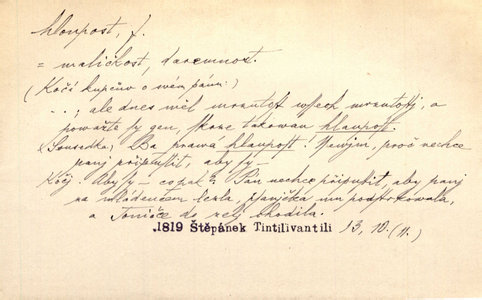 hloupost, f.
= maličkost, daremnost.
(Kočí kupcův o svém pánu:)
...; ale dnes měl mrzutost wssech mrzutostj, a
powažte sy gen, skrze takowau hlaupost.
(Sausedka:) Ba prawá hlaupost! Newjm, proč nechce
panj připustit, aby sy –
Kočj: Aby sy – co pak? Pán nechce připustit, aby panj
za mládencem lezla, psanjčka mu podstrkowala,
a Toniče do relj chodila.
.1819 Štěpánek Tintilivantili 13, 10. (11.)